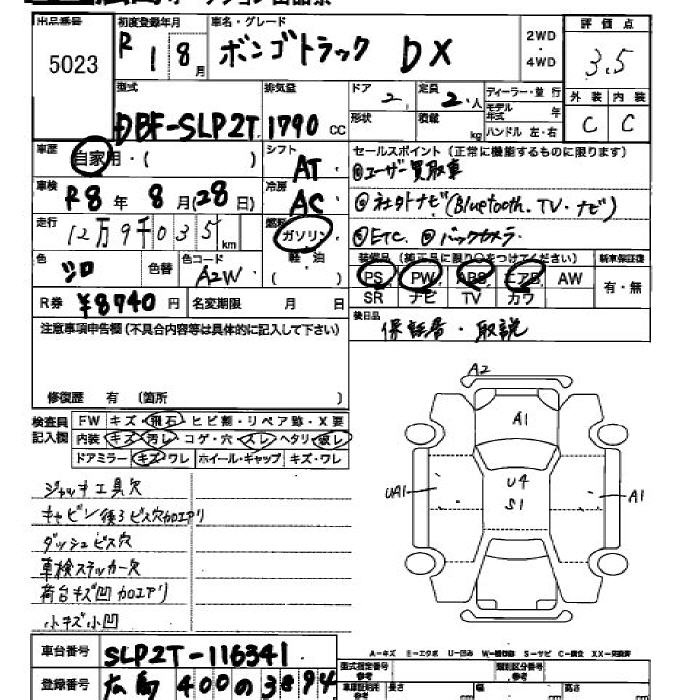 出品番号 初度登録年月 車名・グレード 2WD・4WD 評価点
5023 R 1 8月 ボンゴトラック DX 3.5
型式 排気量 ドア 2 定員 2.人 ディーラー・並行 外装 内装
DBF-SLP2T 1790 cc 形状 積載 kg モデル年式 年 ハンドル 左・右 C C
車歴 自家用・( ) シフト AT セールスポイント(正常に機能するものに限ります)
◎ユーザー買取車
車検 R8年 8月(28日) 冷房 AC ◎社外ナビ(Bluetooth.TV・ナビ)
走行 12万9千035km 燃料 ガソリン・軽・油 ◎ETC. ◎バックカメラ.
色 シロ 色替 色コード A2W 装備品(純正品に限り○をつけてください) 新車保証書
PS PW ABS エアB AW 有・無
SR ナビ TV カワ
R券 ¥8940円 名変期限 月 日 後日品
保証書・取説
注意事項申告欄(不具合内容等は具体的に記入して下さい)
修復歴 有 〔箇所 〕
検査員記入欄 FW キズ・飛石・ヒビ割・リペア跡・X要
内装 キズ・汚レ・コゲ・穴・スレ・ヘタリ・破レ
ドアミラー キズ・ワレ ホイール・キャップ キズ・ワレ
A2
A1
U4
S1
UA1
A1
ジャッキ工具欠
キャビン後ろビス穴加エアリ
ダッシュビス穴
車検ステッカー欠
荷台キズ凹加エアリ
小キズ小凹
A-キズ E-エクボ U-凹み W-補修跡 S-サビ C-腐食 XX-交換済
車台番号 SLP2T-116341
型式指定番号 参考 類別区分番号 参考
登録番号 広島 400 の 3894
車庫証明用 参考 長さ cm 幅 cm 高さ cm